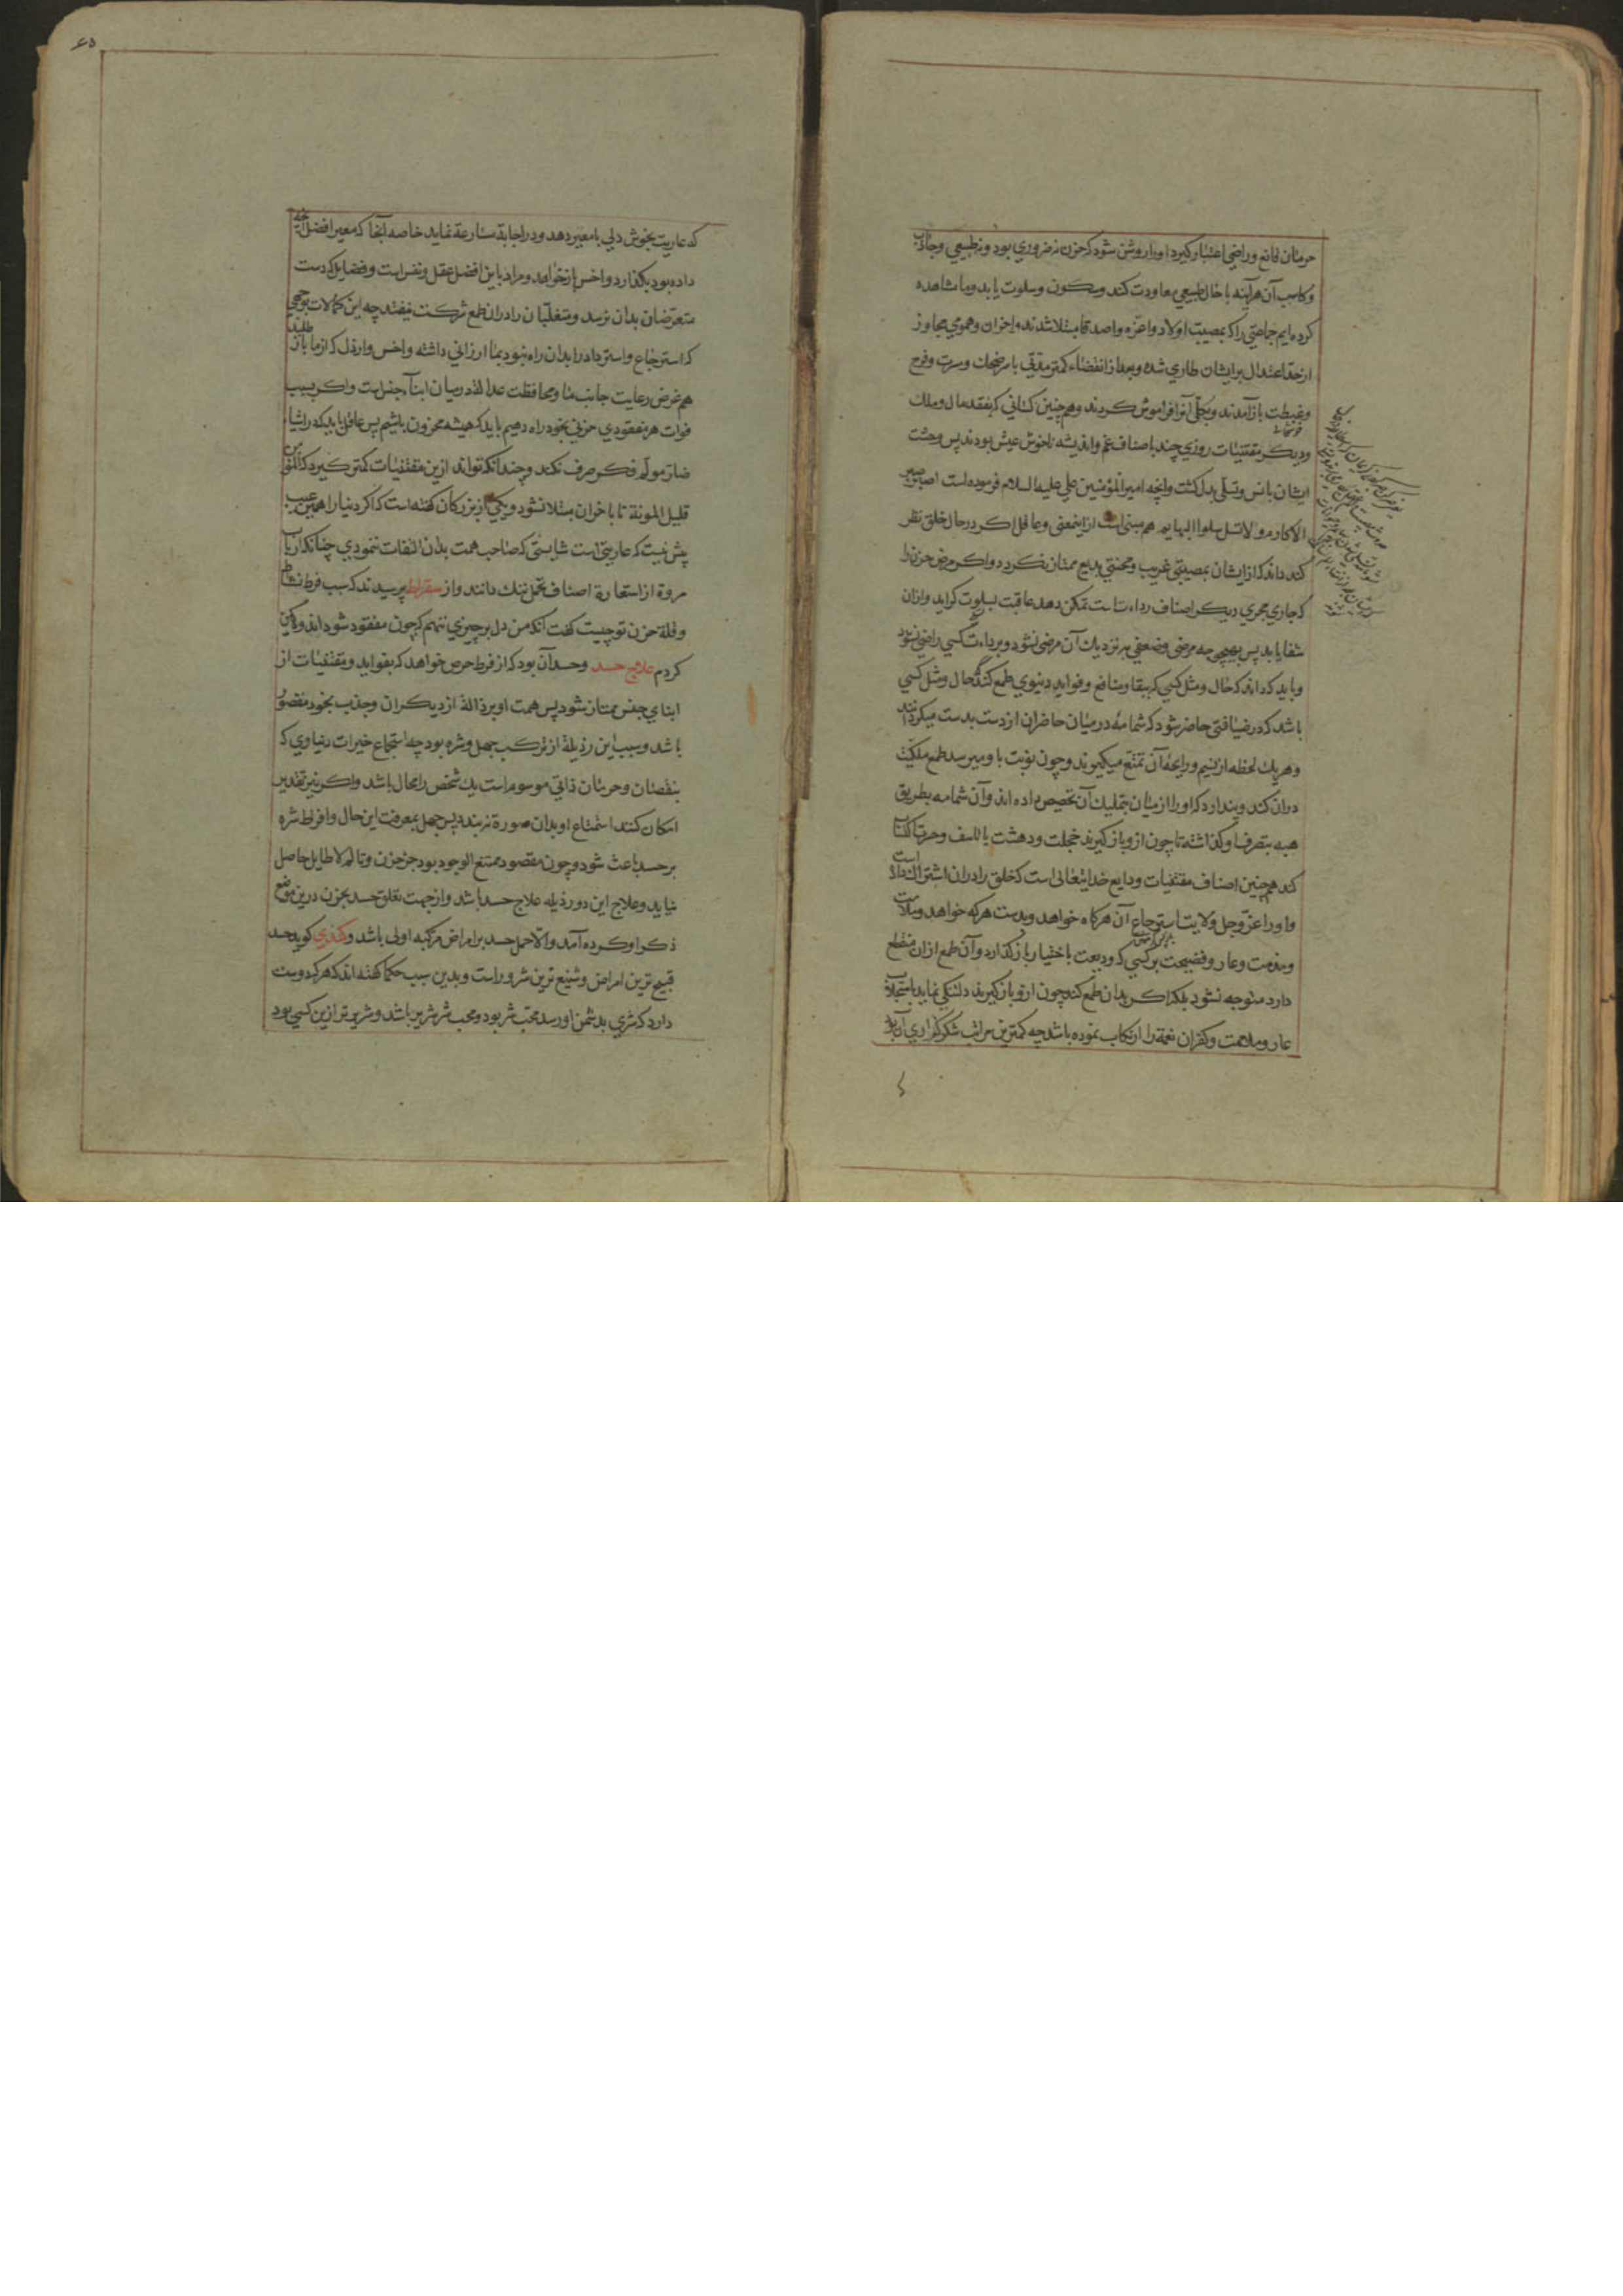 حرمان قانع و راضی اعتبار گیرد او را روشن شود که حزن نه ضروری بود و نه طبیعی و جاذب
و کاسب آن هر آینه با حال طبیعی معاودت کند و سکون و سلوت یابد و ما مشاهده
کرده‌ایم جماعتی را که بمصیبت اولاد و اعزه و اصدقا مبتلا شدند و احزان و هموم مجاوز
از حد اعتدال بر ایشان طاری شده و بعد از انقضاء کمتر مدتی با سر ضحک و مسرت و فرح
و غبطت باز آمدند و بکلی آنرا فراموش کردند و همچنین کسانی که بفقد مال و ملک
و دیگر مقتنیات روزی چند باصناف غم و اندیشه ناخوش عیش بودند پس وحشت
ایشان بانس و تسلی بدل گشت و آنچه امیر المؤمنین علی علیه السلام فرموده است اصبر صبر
الاکارم و لا تسل سلوا البهایم هم مبنی است از اینمعنی و عاقل اگر در حال خلق نظر
کند داند که از ایشان بمصیبتی غریب و محنتی بدیع ممتاز نگردد و اگر مرض حزن را
که جاری مجری دیگر اصناف رداءت است تمکن دهد عاقبت بسلوت گراید و از آن
شفا یابد پس بهیچ وجه مرضی وضعی به نزدیک آن مرضی نشود و برداءت کسبی راضی نشود
و باید که داند که حال و مثل کسی که ببقاء منافع و فواید دنیوی طمع کند حال و مثل کسی
باشد که در ضیافتی حاضر شود که شمامه در میان حاضران از دست بدست میگردانند
و هر یک لحظه از نسیم و رایحه آن تمتع میگیرند و چون نوبت باو میرسد طمع ملکیت
در آن کند و پندارد که او را از میان بتملیک آن تخصیص داده‌اند و آن شمامه بطریق
هبه بتصرف او گذاشته تا چون ازو باز گیرند خجلت و دهشت با تاسف و حسرت اکتساب
کند همچنین اصناف مقتنیات ودایع خدایتعالی است که خلق را در آن اشتراک داده است
و او را عز و جل ولایت استرجاع آن هرگاه خواهد و بدست هر که خواهد و ملامت
و مذمت و عار و فضیحت بر کسی که ودیعت باختیار باز گذارد و آن طمع از آن منقطع
دارد متوجه نشود بلکه اگر بدان طمع کند چون ازو باز گیرند دلتنگی نماید با استجلاب
عار و ملامت و کفران نعمة را ارتکاب نموده باشد چه کمترین مراتب شکرگزاری آن بود
که عاریت بخوش دلی با معیر دهد و در اجابة مسارعة نماید خاصه آنجا که معیر افضل آنچه
داده بود بگذارد و اخس باز خواهد و مراد باین افضل عقل و نفس است و فضایلی که دست
متعرضان بدان نرسد و متغلبان را در آن طمع شرکت نیفتد چه این کمالات بوجهی
که استرجاع و استرداد را بدان راه نبود بما ارزانی داشته و اخس و ارذل که از ما باز طلبد
هم غرض رعایت جانب ما و محافظت عدالة در میان ابناء جنس است و اگر بسبب
فوات هر مفقودی حزنی بخود راه دهیم باید که همیشه محزون باشیم پس عاقل باید که در اشیاء
ضار مولم فکر صرف نکند و چندانکه تواند ازین مقتنیات کمتر گیرد که المؤمن
قلیل المونة تا باحزان مبتلا نشود و یکی از بزرگان گفته است که اگر دنیا را همین عیب
بیش نیست که عاریتی است شایستی که صاحب همت بدان التفات ننمودی چنانکه ارباب
مروة از استعارة اصناف تجمل ننگ دانند و از سقراط پرسیدند که سبب فرط نشاط
و قلة حزن تو چیست گفت آنکه من دل بر چیزی ننهم که چون مفقود شود اندوهگین
گردم علاج حسد و حسد آن بود که از فرط حرص خواهد که بفواید و مقتنیات از
ابنای جنس ممتاز شود پس همت او بر ازالة از دیگران و جذب بخود مقصور
باشد و سبب این رذیلة از ترکب جهل و شره بود چه استجماع خیرات دنیاوی که
بنقصان و حرمان ذاتی موسوم است یک شخص را محال باشد و اگر نیز تقدیر
امکان کنند استمتاع او بدان صورة نبندد پس جهل بمعرفت این حال و افراط شره
بر حسد باعث شود و چون مقصود ممتنع الوجود بود جز حزن و تالم لا طایل حاصل
نیاید و علاج این دو رذیله علاج حسد باشد و از جهت تعلق حسد بحزن درین موضع
ذکر او کرده آمد و الا حمل حسد بر امراض مرکبه اولی باشد و کندی گوید حسد
قبیح ترین امراض و شنیع ترین شرور است و بدین سبب حکما گفته‌اند که هر که دوست
دارد که شری بدشمن او رسد محب شر بود و محب شر شریر باشد و شریرتر ازین کسی بود